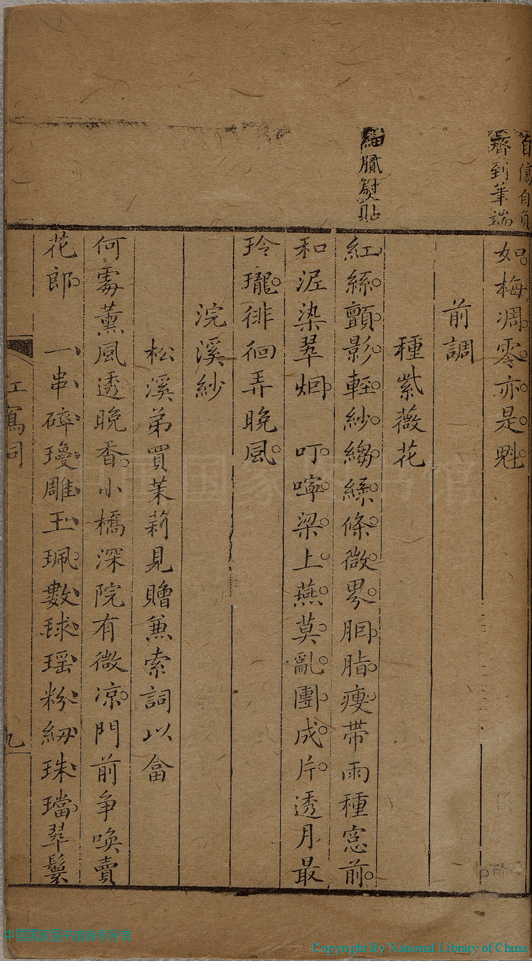 自傷自負
齊到筆端
如梅凋零亦是魁
前調
種紫薇花
細膩熨貼
紅絲顫影輕紗縐絲條微界胭脂瘦帶雨種窓前
和泥染翠烟 叮嚀梁上燕莫亂團成片透月最
玲瓏徘徊弄晚風
浣溪紗
松溪弟買茉莉見贈兼索詞以畣
何處薰風透晚香小橋深院有微凉門前爭喚賣
花郎 一串碎瓊雕玉珮數毬瑤粉紉珠璫翠鬟
九
Copyright By National Library of China